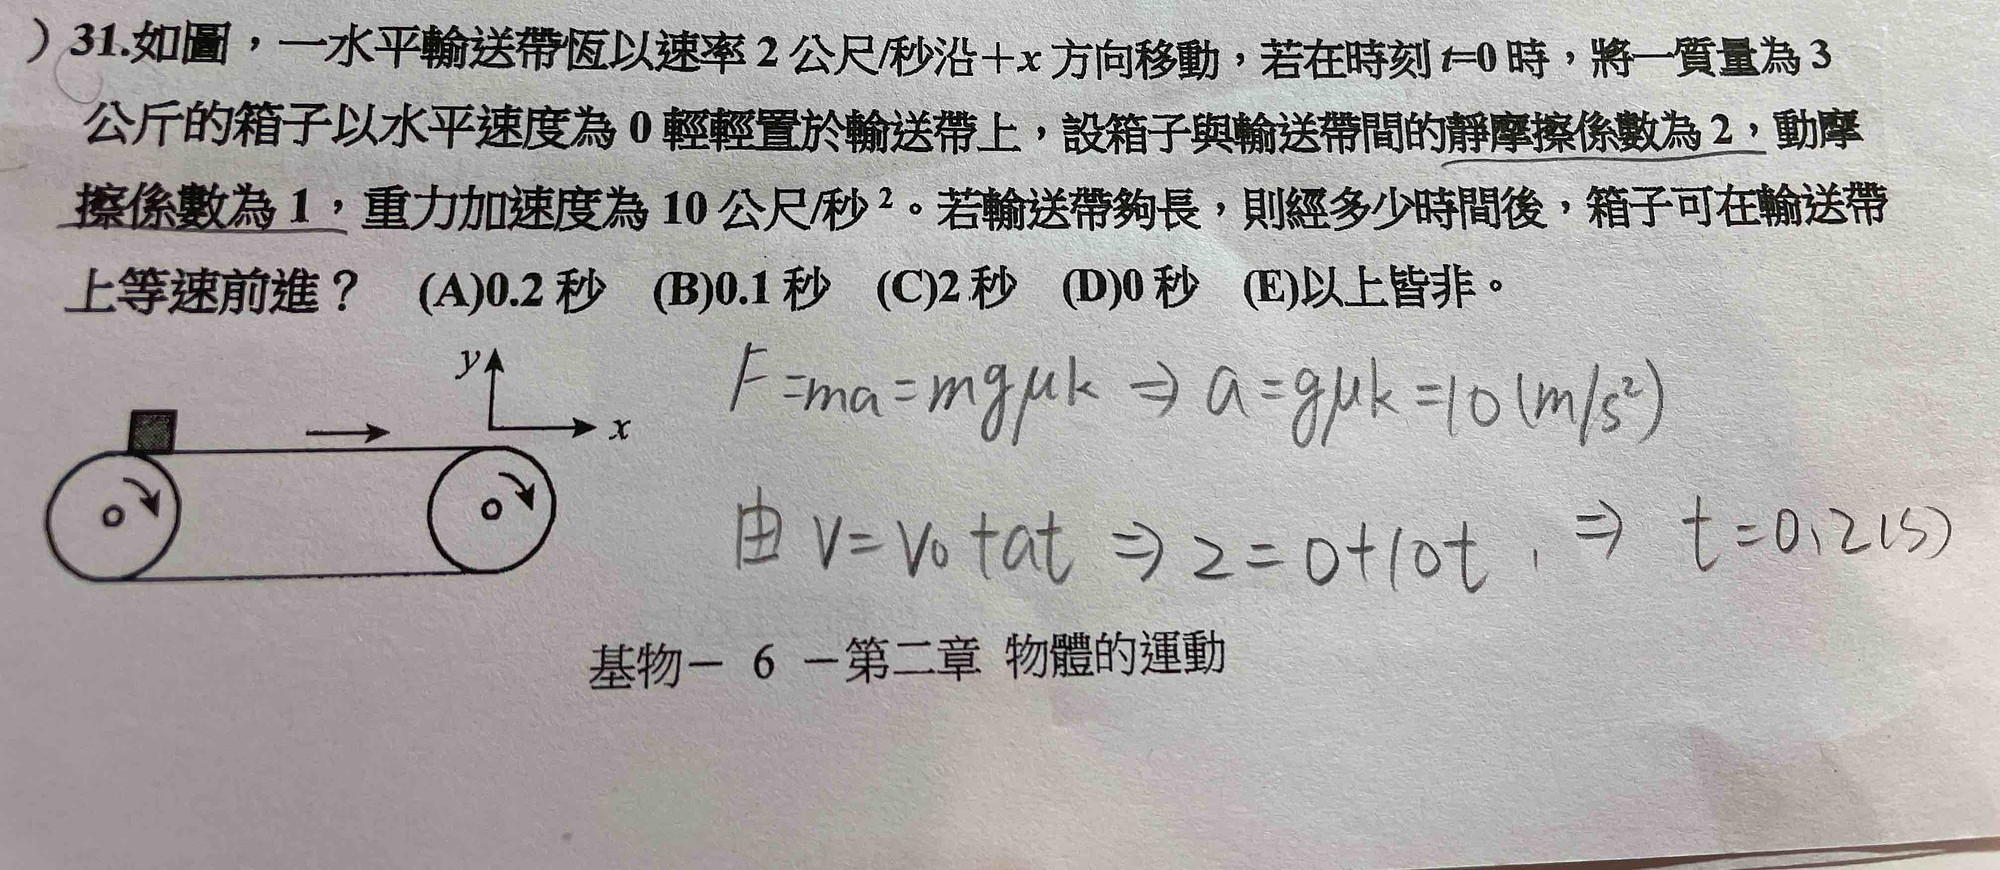 ）31.如圖，一水平輸送帶恆以速率 2 公尺/秒沿＋x 方向移動，若在時刻 t=0 時，將一質量為 3
公斤的箱子以水平速度為 0 輕輕置於輸送帶上，設箱子與輸送帶間的靜摩擦係數為 2，動摩
擦係數為 1，重力加速度為 10 公尺/秒²。若輸送帶夠長，則經多少時間後，箱子可在輸送帶
上等速前進？ (A)0.2 秒 (B)0.1 秒 (C)2 秒 (D)0 秒 (E)以上皆非。
y
x
F=ma=mgμk ⇒ a=gμk=10(m/s²)
由 V=V₀+at ⇒ 2=0+10t, ⇒ t=0.2(s)
基物－ 6 －第二章 物體的運動